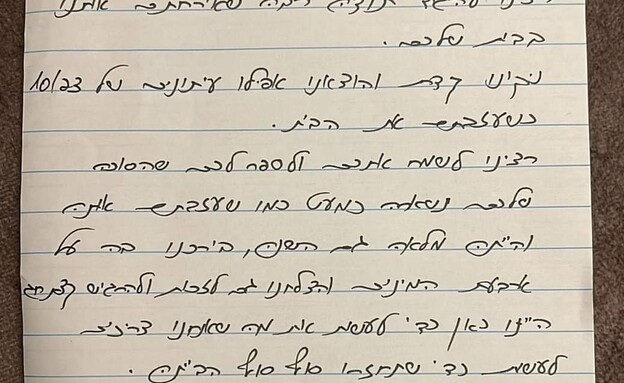 רצינו להגיד תודה רבה שאירחתם אותנו
בבית שלכם.
ניקינו קצת והוצאנו אפילו עיתונים של 10/23
כשעזבתם את הבית.
רצינו לשמח אתכם ולספר לכם שהסוכה
שלכם נשארה כמעט כמו שעזבתם אותה
והיתה מלאה גם השנה, בירכנו בה על
ארבעת המינים והצלחנו גם לזכות ולהרגיש קצת חג
היינו כאן כדי לעשות את מה שאנחנו צריכים
לעשות כדי שתחזרו סוף סוף הביתה.